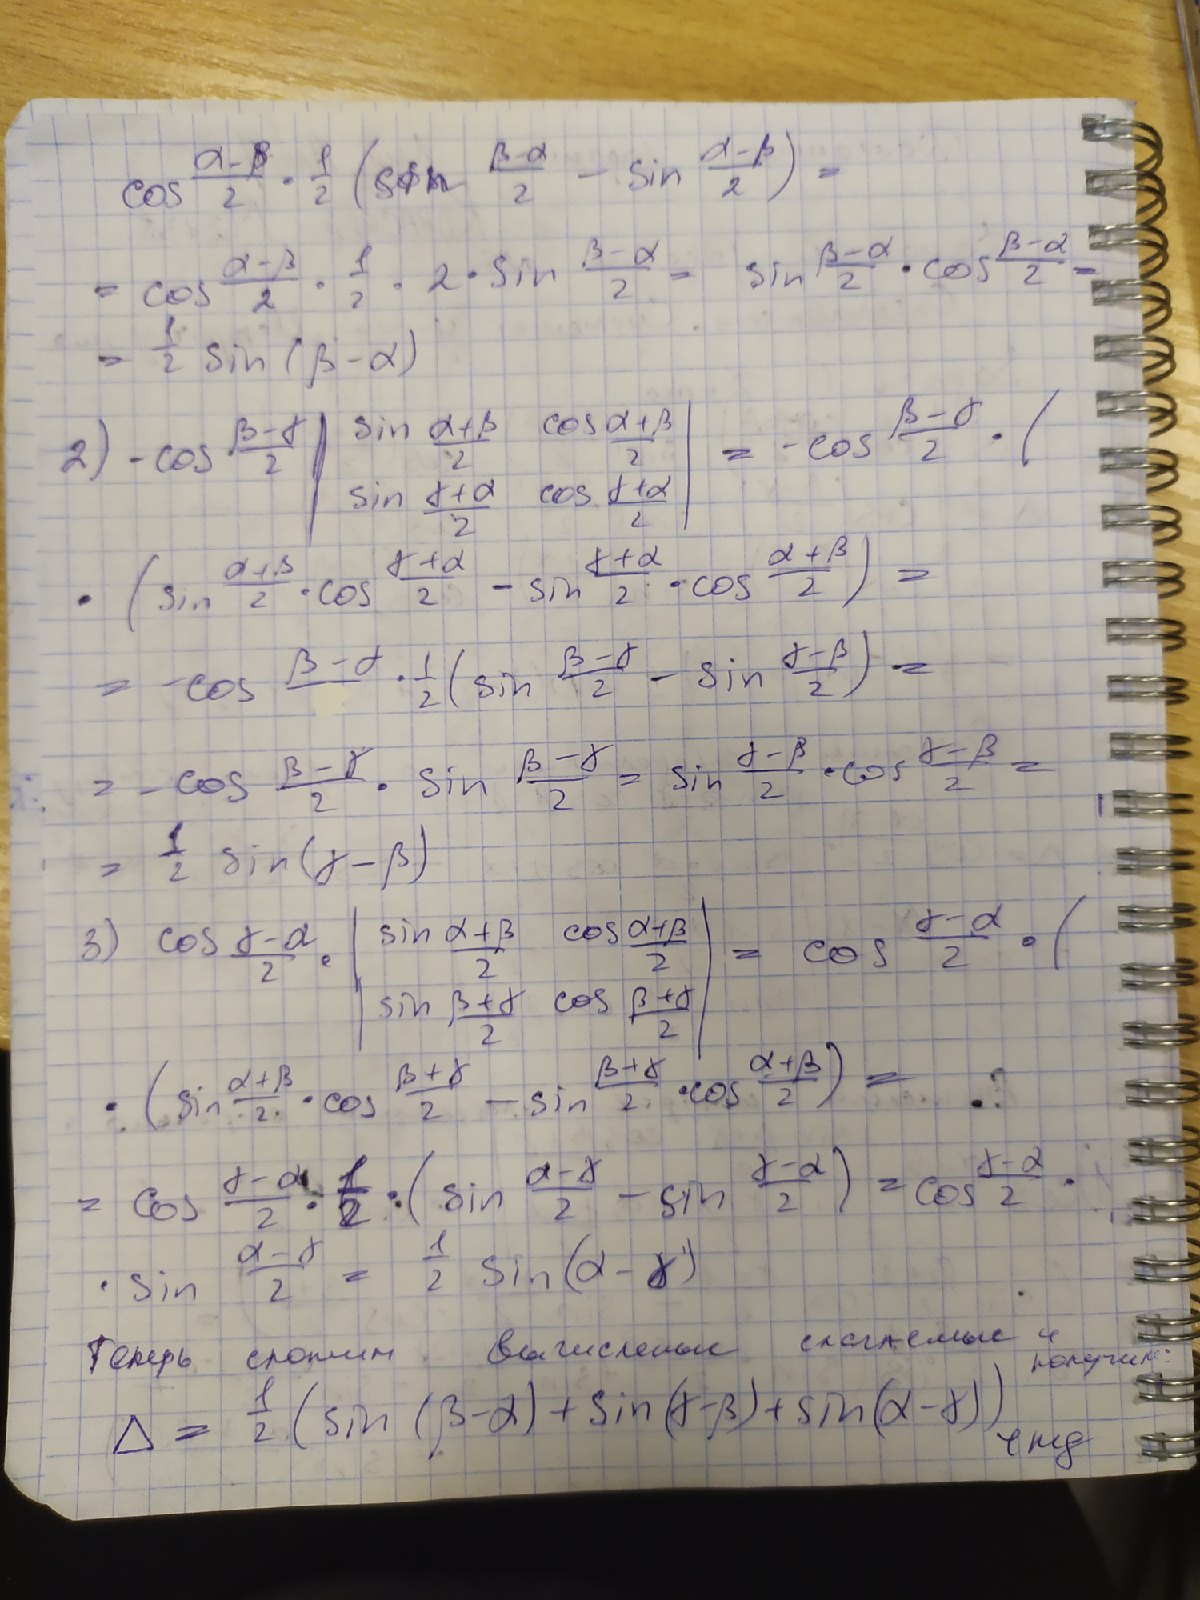 cos (α-β)/2 · 1/2 (sin (β-α)/2 - sin (α-β)/2) =
= cos (α-β)/2 · 1/2 · 2 · sin (β-α)/2 = sin (β-α)/2 · cos (β-α)/2 =
= 1/2 sin(β-α)
2) -cos (β-γ)/2 | sin (α+β)/2 cos (α+β)/2 | = -cos (β-γ)/2 · (
| sin (γ+α)/2 cos (γ+α)/2 |
· (sin (α+β)/2 · cos (γ+α)/2 - sin (γ+α)/2 · cos (α+β)/2) =
= -cos β-γ · 1/2 (sin (β-γ)/2 - sin (γ-β)/2) =
= -cos (β-γ)/2 · sin (β-γ)/2 = sin (γ-β)/2 · cos (γ-β)/2 =
= 1/2 sin(γ-β)
3) cos (γ-α)/2 · | sin (α+β)/2 cos (α+β)/2 | = cos (γ-α)/2 · (
| sin (β+γ)/2 cos (β+γ)/2 |
· (sin (α+β)/2 · cos (β+γ)/2 - sin (β+γ)/2 · cos (α+β)/2) =
= cos (γ-α)/2 · 1/2 · (sin (α-γ)/2 - sin (γ-α)/2) = cos (γ-α)/2 ·
· sin (α-γ)/2 = 1/2 sin(α-γ)
Теперь сложим вычисленные слагаемые и получим:
Δ = 1/2 (sin(β-α) + sin(γ-β) + sin(α-γ))
чтд